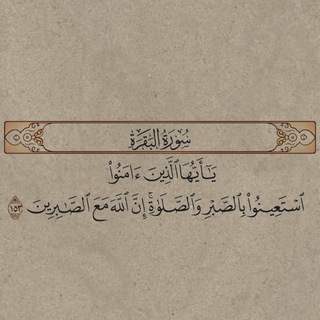 سُورَةُ البَقَرَةِ
يَـٰٓأَيُّهَا ٱلَّذِينَ ءَامَنُوا۟
ٱسْتَعِينُوا۟ بِٱلصَّبْرِ وَٱلصَّلَوٰةِ ۚ إِنَّ ٱللَّهَ مَعَ ٱلصَّـٰبِرِينَ ١٥٣